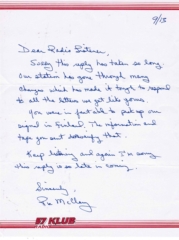 9/15
Dear Radio Listener,
Sorry this reply has taken so long.
Our station has gone through many
changes which has made it tough to respond
to all the letters we get like yours.
You were in fact able to pick up our
signal in Finland. The information and
tape you sent verify that.
Keep listening and again I'm sorry
this reply is so late in coming.
Sincerely,
57 KLUB